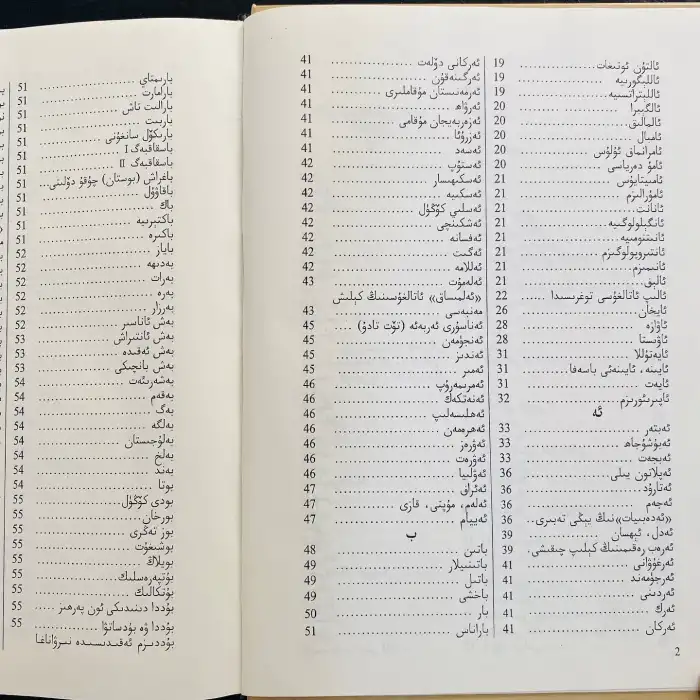 ئالتۇن ئوتىغات ............ 19
ئاللېگورىيە ............ 19
ئاللىتېراتسىيە ............ 19
ئالگېبرا ............ 20
ئالمالىق ............ 20
ئامبال ............ 20
ئامرانماق ئۇلۇس ............ 20
ئامۇ دەرياسى ............ 20
ئامىتايۇس ............ 21
ئامۇرالىزم ............ 21
ئانانت ............ 21
ئانگېلولوگىيە ............ 21
ئانىتنومىيە ............ 21
ئانتروپولوگىزم ............ 21
ئانىمىزم ............ 21
ئالېق ............ 21
ئالىپ ئاتالغۇسى توغرىسىدا ............ 22
ئايخان ............ 26
ئاۋازە ............ 28
ئاۋىستا ............ 28
ئايەتۇللا ............ 31
ئايىنە، ئايىنەئى باسەفا ............ 31
ئايەت ............ 31
ئاپىرىئورىزم ............ 32
ئە
ئەبتەر ............ 33
ئەبۇشۇجاھ ............ 33
ئەبجەت ............ 33
ئەپلاتون يىلى ............ 36
ئەتارۇد ............ 36
ئەجەم ............ 36
«ئەدەبىيات»نىڭ يېڭى تەبىرى .. 36
ئەدل، ئېھسان ............ 39
ئەرەب رەقىمىنىڭ كېلىپ چىقىشى . 39
ئەرغۇۋانى ............ 41
ئەرجۇمەند ............ 41
ئەردىنى ............ 41
ئەرك ............ 41
ئەركان ............ 41
ئەركانى دۆلەت ............ 41
ئەرگىنەقۇن ............ 41
ئەرمەنىستان مۇقاملىرى ............ 41
ئەرۋاھ ............ 41
ئەزەربەيجان مۇقامى ............ 41
ئەزرۇئا ............ 41
ئەسەد ............ 41
ئەستۇپ ............ 42
ئەسكىھىسار ............ 42
ئەسكىيە ............ 42
ئەسلىي كۆڭۈل ............ 42
ئەشكىنچى ............ 42
ئەفسانە ............ 42
ئەگىت ............ 42
ئەللامە ............ 42
ئەلەمۇت ............ 43
«ئەلمىساق» ئاتالغۇسىنىڭ كېلىش
مەنبەسى ............ 43
ئەناسۇرى ئەربەئە (تۆت تادۇ) .... 45
ئەنجۈمەن ............ 45
ئەندىز ............ 45
ئەمىر ............ 45
ئەمرىمەرۇپ ............ 46
ئەنەتكەك ............ 46
ئەھلىسەلىپ ............ 46
ئەھرەمەن ............ 46
ئەۋرەز ............ 46
ئەۋرەت ............ 46
ئەۋلىيا ............ 46
ئەئراق ............ 47
ئەلەم، مۇپتى، قازى ............ 47
ئەييام ............ 47
ب
باتىن ............ 48
باتىنىيلار ............ 49
باتىل ............ 49
باخشى ............ 49
بار ............ 50
باراناس ............ 51
2
بارىمتاي ............ 51
بارامارت ............ 51
بارالىت تاش ............ 51
بارىت ............ 51
بارىكۆل سانغۇنى ............ 51
باسقاقبەگ I ............ 51
باسقاقبەگ II ............ 51
باغراش (بوستان) چۇقۇ دۆلىتى ... 51
باقاۋۇل ............ 51
باك ............ 51
باكتېرىيە ............ 51
باكىرە ............ 51
باياز ............ 52
بەدىھە ............ 52
بەرات ............ 52
بەرە ............ 52
بەرزار ............ 52
بەش ئاناسىر ............ 52
بەش ئانتىراش ............ 53
بەش ئەقىدە ............ 53
بەش بانچىكى ............ 53
بەشەرىيەت ............ 54
بەقەم ............ 54
بەگ ............ 54
بەلگە ............ 54
بەلۇجىستان ............ 54
بەلخ ............ 54
بەند ............ 54
بوتا ............ 54
بودى كۆڭۈل ............ 55
بورخان ............ 55
بوز تەڭرى ............ 55
بوشىغۇت ............ 55
بويلاق ............ 55
بۇتپەرەسلىك ............ 55
بۇتكالىك ............ 55
بۇددا دىنىدىكى ئون پەرھىز ..... 55
بۇددا ۋە بۇدساتۋا ............ 55
بۇددىزم ئەقىدىسىدە نىرۋاناغا